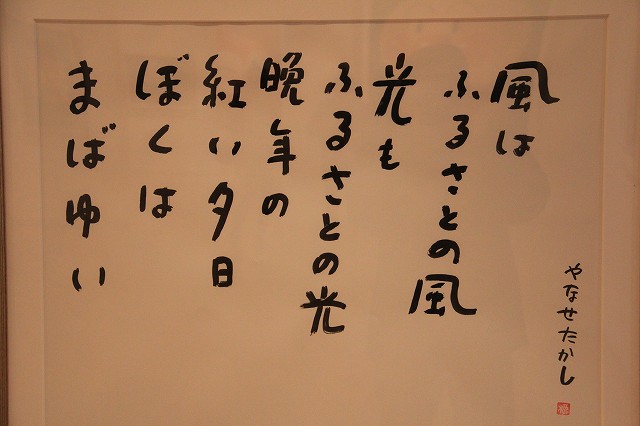 風は
ふるさとの風
光も
ふるさとの光
晩年の
紅い夕日
ぼくは
まばゆい
やなせたかし